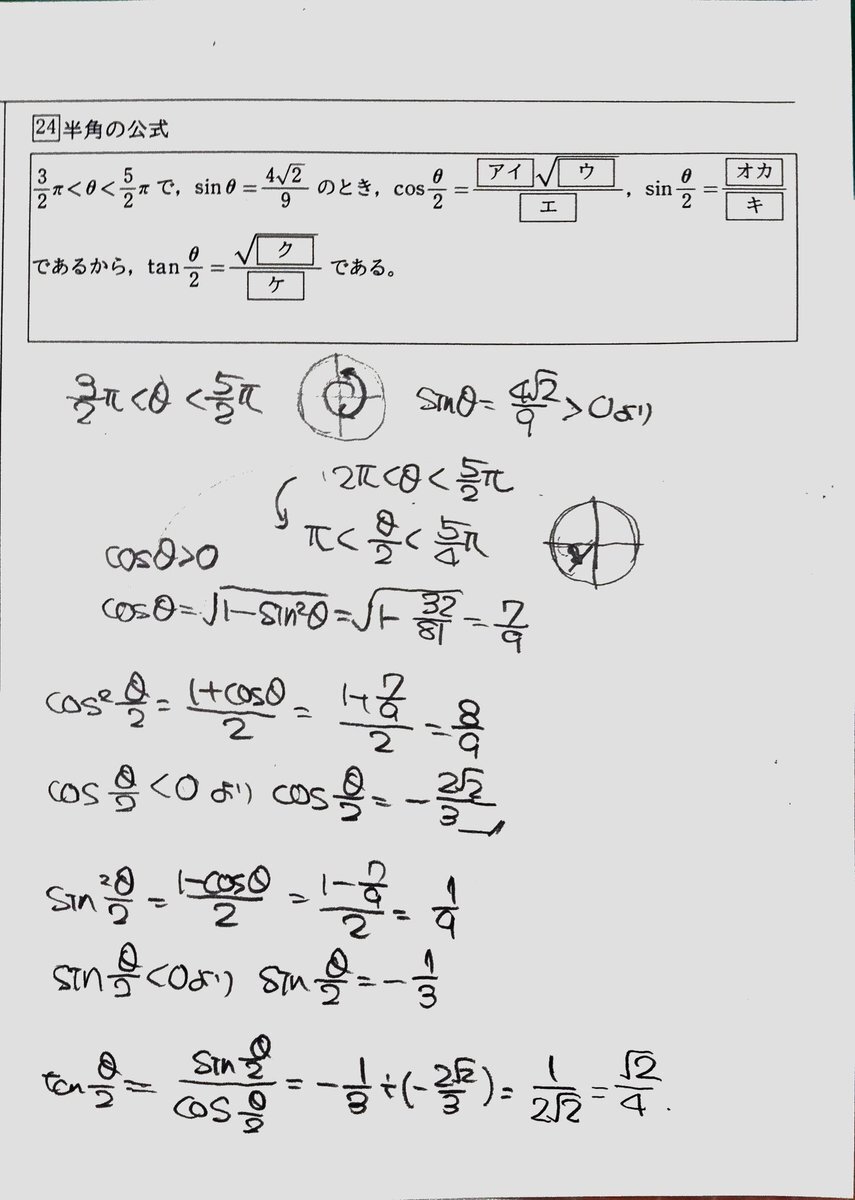 24 半角の公式
3/2 π<θ<5/2 π で, sinθ=4√2/9 のとき, cos θ/2 = アイ√ウ/エ , sin θ/2 = オカ/キ
であるから, tan θ/2 = √ク/ケ である。
3/2 π<θ<5/2 π sinθ=4√2/9>0より
2π<θ<5/2 π
π<θ/2<5/4 π
cosθ>0
cosθ=√(1-sin²θ)=√(1-32/81)=7/9
cos² θ/2 = (1+cosθ)/2 = (1+7/9)/2 = 8/9
cos θ/2 <0 より cos θ/2 = -2√2/3
sin² θ/2 = (1-cosθ)/2 = (1-7/9)/2 = 1/9
sin θ/2 <0より sin θ/2 = -1/3
tan θ/2 = (sin θ/2)/(cos θ/2) = -1/3÷(-2√2/3) = 1/2√2 = √2/4.